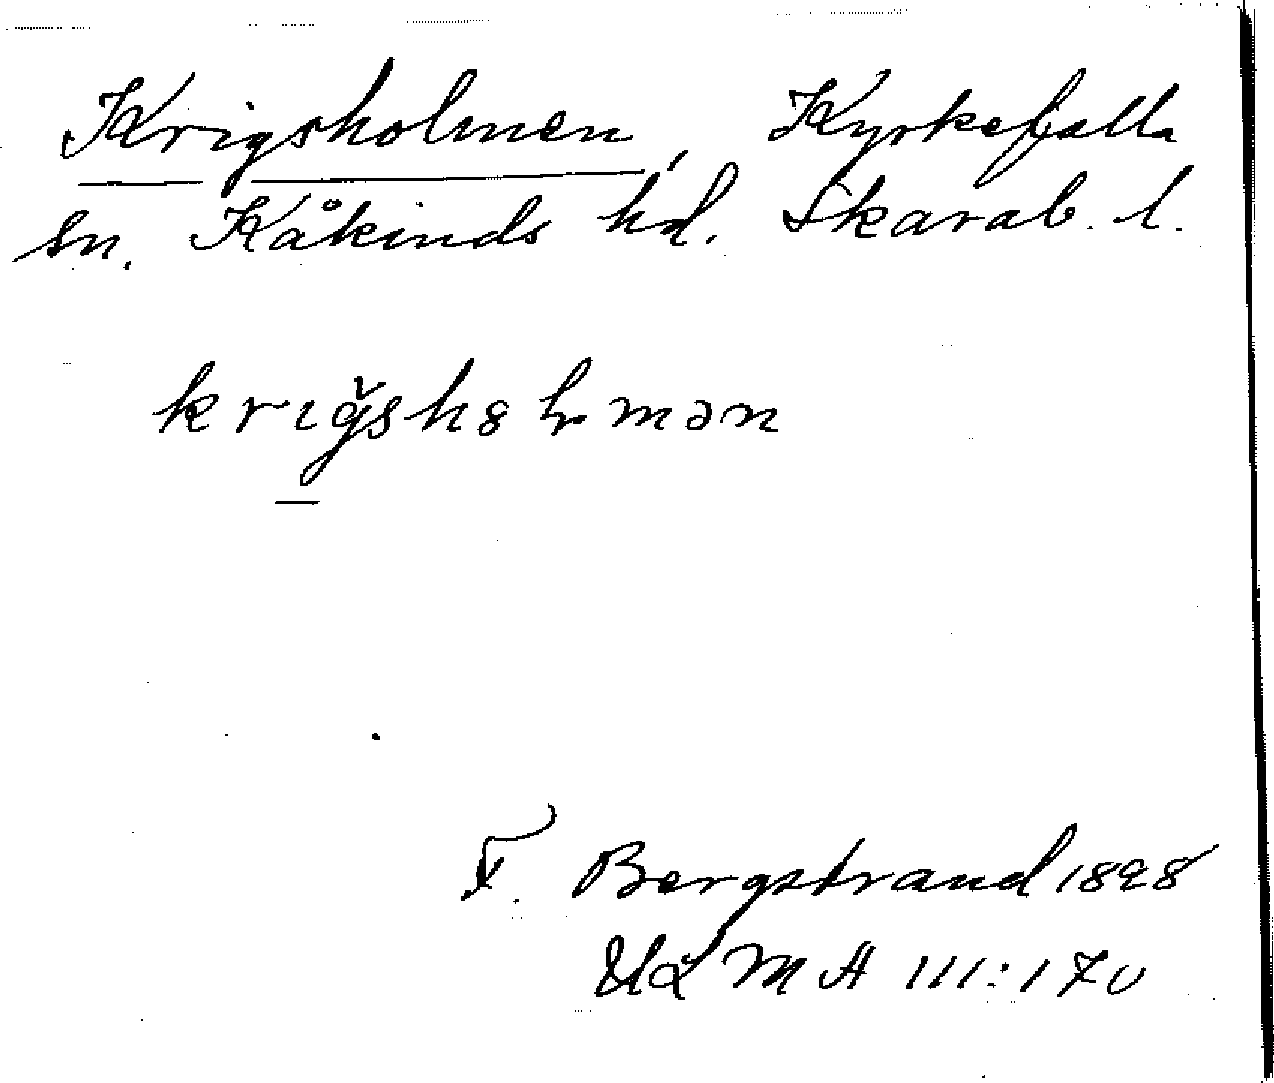 Krigsholmen, Kyrkefalla
sn. Kåkinds hd. Skarab. l.
F. Bergstrand 1898
ULMA 111:170